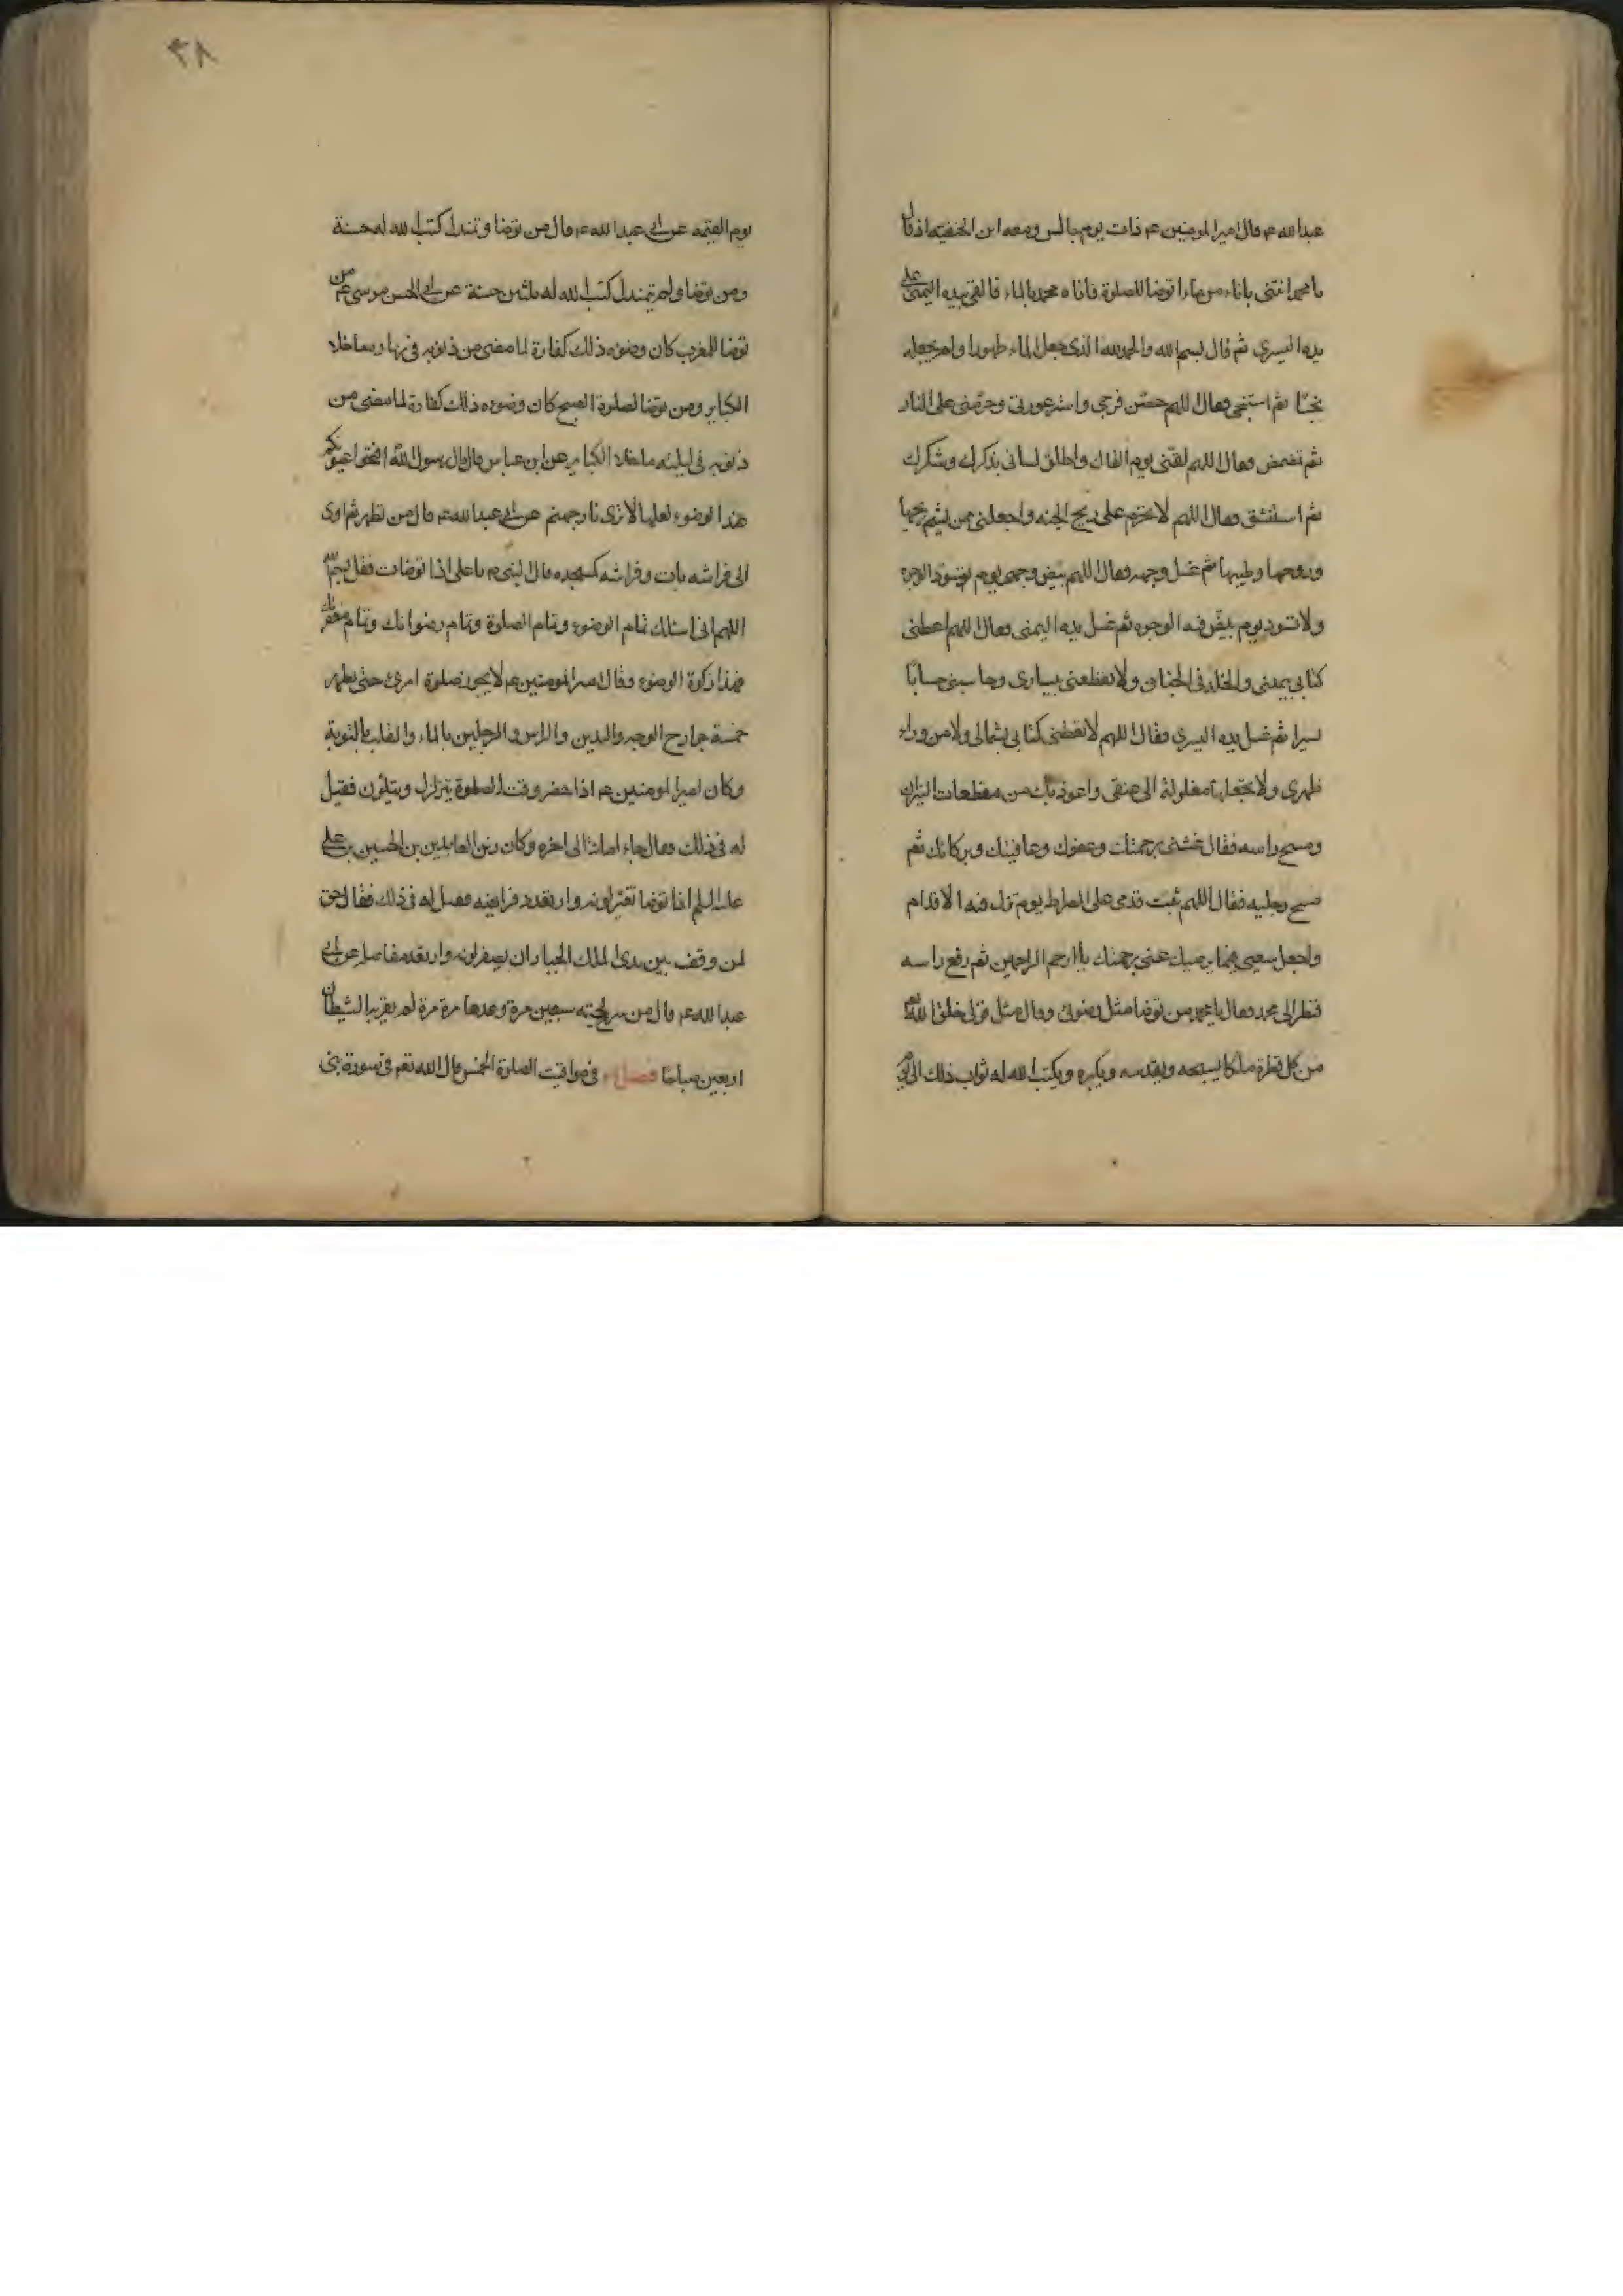 عبدالله عم قال امير المومنين عم ذات يوم جالس ومعه ابن الحنفيه اذ قال
يا محمد ائتنى باناء من ماء اتوضا للصلوة فاتاه محمد بالماء فالقى بيده اليمنى على
يده اليسرى ثم قال بسم الله والحمد لله الذى جعل الماء طهورا ولم يجعله
نجسًا ثم استنجى فقال اللهم حصّن فرجى واستر عورتى وحرّمنى على النار
ثم تمضمض فقال اللهم لقنى يوم القاك واطلق لسانى بذكرك وشكرك
ثم استنشق فقال اللهم لا تحرم على ريح الجنه واجعلنى ممن يشم ريحها
وروحها وطيبها ثم غسل وجهه فقال اللهم بيّض وجهى يوم تسود الوجوه
ولا تسود يوم تبيضّ فيه الوجوه ثم غسل يده اليمنى فقال اللهم اعطنى
كتابى بيمينى والخلد فى الجنان ولا تعطعنى بيسارى وحاسبنى حسابا
يسيرا ثم غسل يده اليسرى فقال اللهم لا تعطنى كتابى بشمالى ولا من وراء
ظهرى ولا تجعلها مغلولة الى عنقى واعوذ بك من مقطعات النيران
ومسح راسه فقال غشنى برحمتك وعفوك وعافيتك وبركاتك ثم
مسح رجليه فقال اللهم ثبت قدمى على الصراط يوم تزل فيه الاقدام
واجعل سعيى فيما يرضيك عنى برحمتك يا ارحم الراحمين ثم رفع راسه
فنظر الى محمد فقال يا محمد من توضا مثل وضوئى وقال مثل قولى خلق الله
من كل قطرة ملكا يسبحه ويقدسه ويكبره ويكتب الله له ثواب ذلك الى يوم
٣٨
يوم القيمه عن ابى عبدالله عم قال من توضا وتمندل كتب الله له حسنة
ومن توضا ولم يتمندل كتب الله له ثلثين حسنة عن ابى الحسن موسى عم من
توضا للمغرب كان وضوءه ذلك كفارة لما مضى من ذنوبه فى نهاره ما خلا
الكباير ومن توضا لصلوة الصبح كان وضوءه ذلك كفارة لما مضى من
ذنوبه فى ليلته ما خلا الكباير عن ابن عباس قال قال رسول الله افتحوا عيونكم
عند الوضوء لعلها لا ترى نار جهنم عن ابى عبدالله عم قال من تطهر ثم اوى
الى فراشه بات وفراشه كمسجده قال النبى م يا على اذا توضات فقل بسم الله
اللهم انى اسئلك تمام الوضوء وتمام الصلوة وتمام رضوانك وتمام مغفرتك
فهذا زكوة الوضوء وقال امير المومنين عم لا يجوز صلوة امرئ حتى يطهر
خمسة جوارح الوجه واليدين والراس والرجلين بالماء والقلب بالتوبة
وكان امير المومنين عم اذا حضر وقت الصلوة يتزلزل ويتلون فقيل
له فى ذلك فقال جاء امانة الى اخره وكان زين العابدين بن الحسين بن على
عليه السلم اذا توضا تغيّر لونه وارتعدت فرايصه فقيل له فى ذلك فقال حق
لمن وقف بين يدى الملك الجبار ان يصفر لونه وارتعد مفاصله عن ابى
عبدالله عم قال من سرح لحيته سبعين مرة وعدها مرة مرة لم يقربه الشيطان
اربعين صباحا فصل فى مواقيت الصلوة الخمس قال الله تعم فى سورة بنى